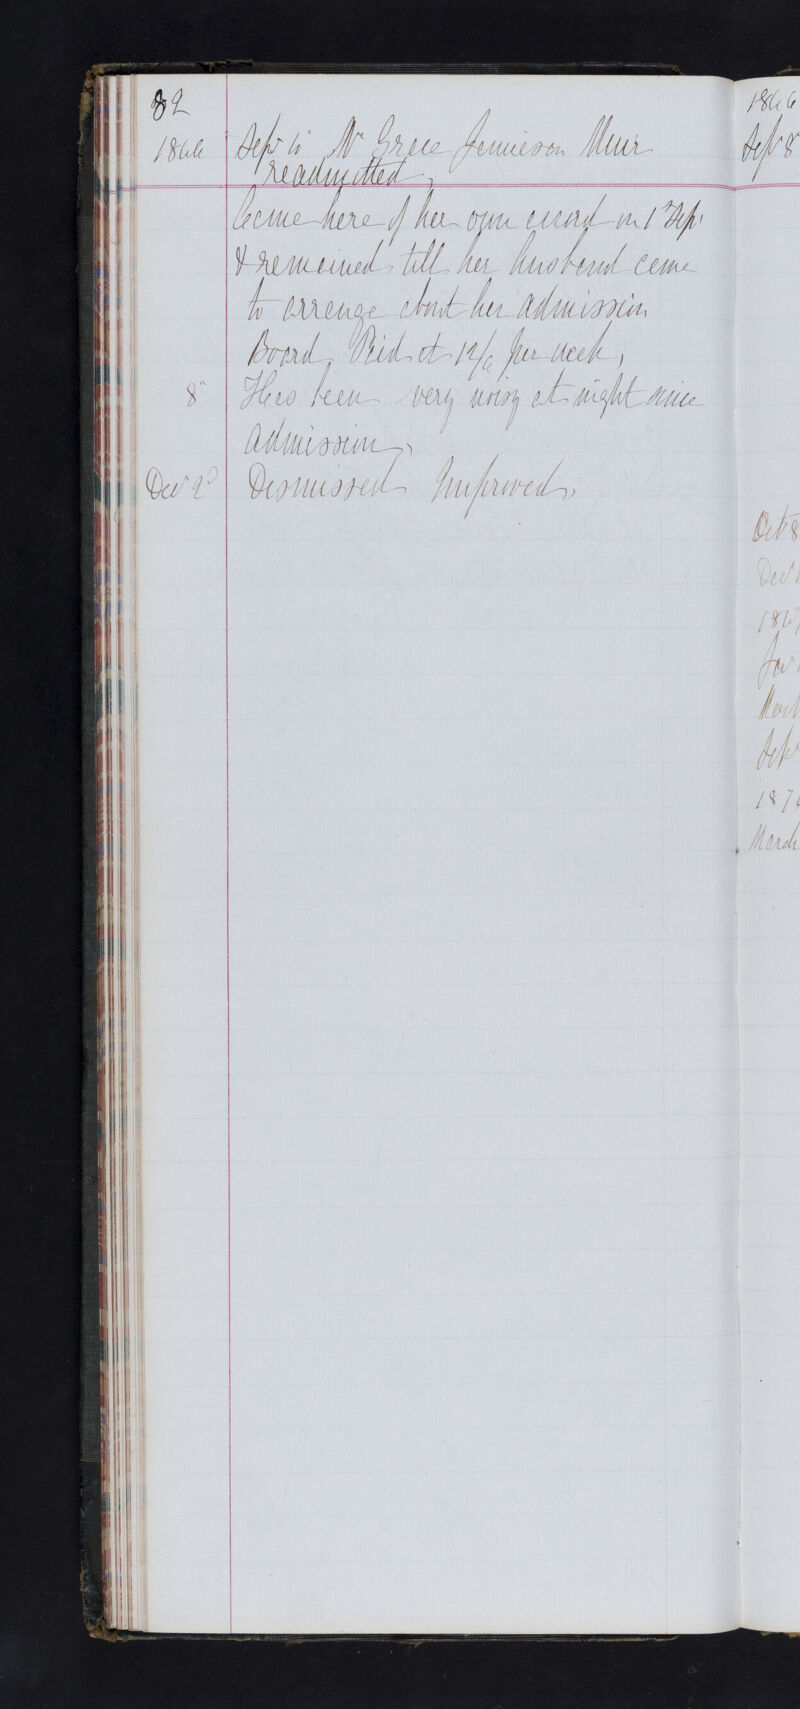 82
1866 Sepr 6" Mrs Grace Jamieson Muir
readmitted,
Came here of her own accord on 1st Sepr
& remained till her husband came
to arrange about her admission
Board Paid at 12/6 per week,
8" Has been very noisy at night since
admission,
Decr 2d Dismissed Improved,
1866
Sepr 8
Oct 8
Decr
1867
Sepr
187
March